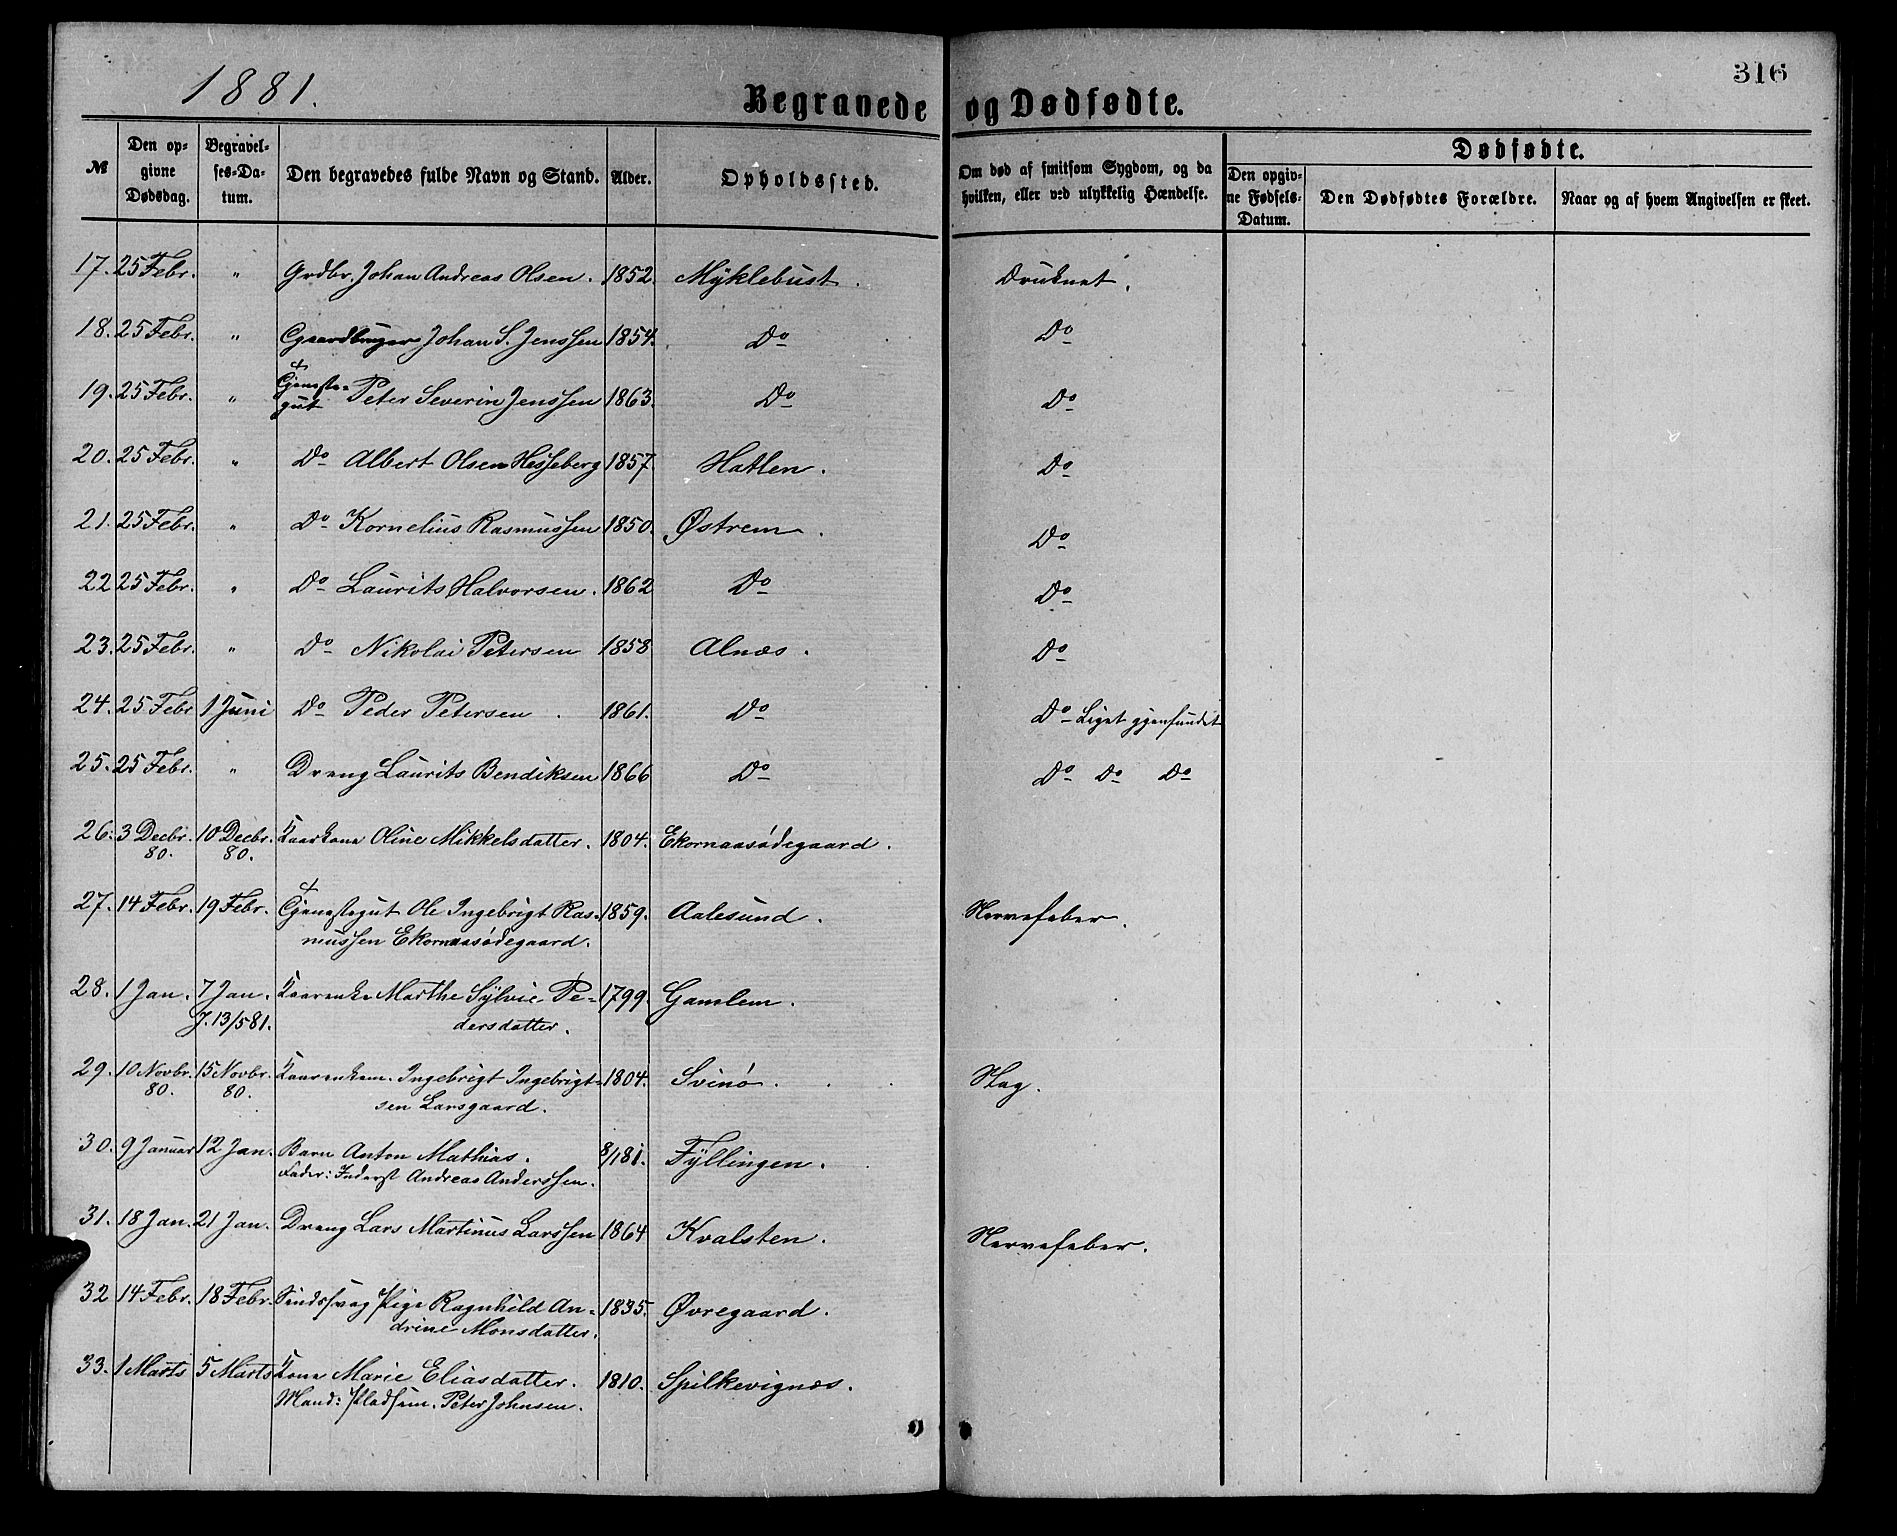 1881.
316
Begravede og Dødfødte.
№
Den opgivne Dødsdag.
Begravelses-Datum.
Den begravedes fulde Navn og Stand.
Alder.
Opholdssted.
Om død af smitsom Sygdom, og da hvilken, eller ved ulykkelig Hændelse.
Dødfødte.
Den opgivne Fødsels-Datum.
Den Dødfødtes Forældre.
Naar og af hvem Angivelsen er skeet.
17. 25 Febr. " Grdbr. Johan Andreas Olsen. 1852. Myklebust. Druknet.
18. 25 Febr. " Gaardbruger Johan S. Jenssen 1854. Do Do
19. 25 Febr. " Tjenestegut Peter Severin Jenssen 1863. Do Do
20. 25 Febr. " Do Albert Olsen Hesseberg 1857. Hatlen. Do
21. 25 Febr. " Do Kornelius Rasmussen 1850. Østrem. Do
22 25 Febr. " Do Laurits Halvorsen. 1862 Do Do
23. 25 Febr. " Do Nikolai Petersen 1858 Alnæs. Do
24. 25 Febr 1 Juni Do Peder Petersen. 1861. Do Do Liget gjenfundet
25. 25 Febr. " Dreng Laurits Bendiksen 1866 Do Do Do Do
26. 3 Decbr. 10 Decbr. Kaarkone Oline Mikkelsdatter. 1804. Ekornaasødegaard.
80. 80.
27. 14 Febr. 19 Febr. Tjenestegut Ole Ingebrigt Ras- 1859. Aalesund. Nervefeber.
mussen Ekornaasødegaard.
28. 1 Jan. 7 Jan. Kaarenke Marthe Sylvie Pe- 1799. Gamlem.
J. 13/5 81. dersdatter.
29. 10 Novbr. 15 Novbr. Kaarenkem. Ingebrigt Ingebrigt- 1804. Svinø. Slag.
80. 80. sen Larsgaard.
30. 9 Januar 12 Jan. Barn Anton Mathias. 8/1 81. Fyllingen.
Fader: Inderst Andreas Anderssen.
31. 18 Jan. 21 Jan. Dreng Lars Martinus Larssen 1864 Kvalsten. Nervefeber.
32 14 Febr. 18 Febr. Sindssvag Pige Ragnhild An- 1835. Øvregaard.
drine Monsdatter.
33. 1 Marts 5 Marts Kone Marie Eliasdatter. 1810. Spilkevignæs.
Mand: Pladsem. Peter Johnsen.